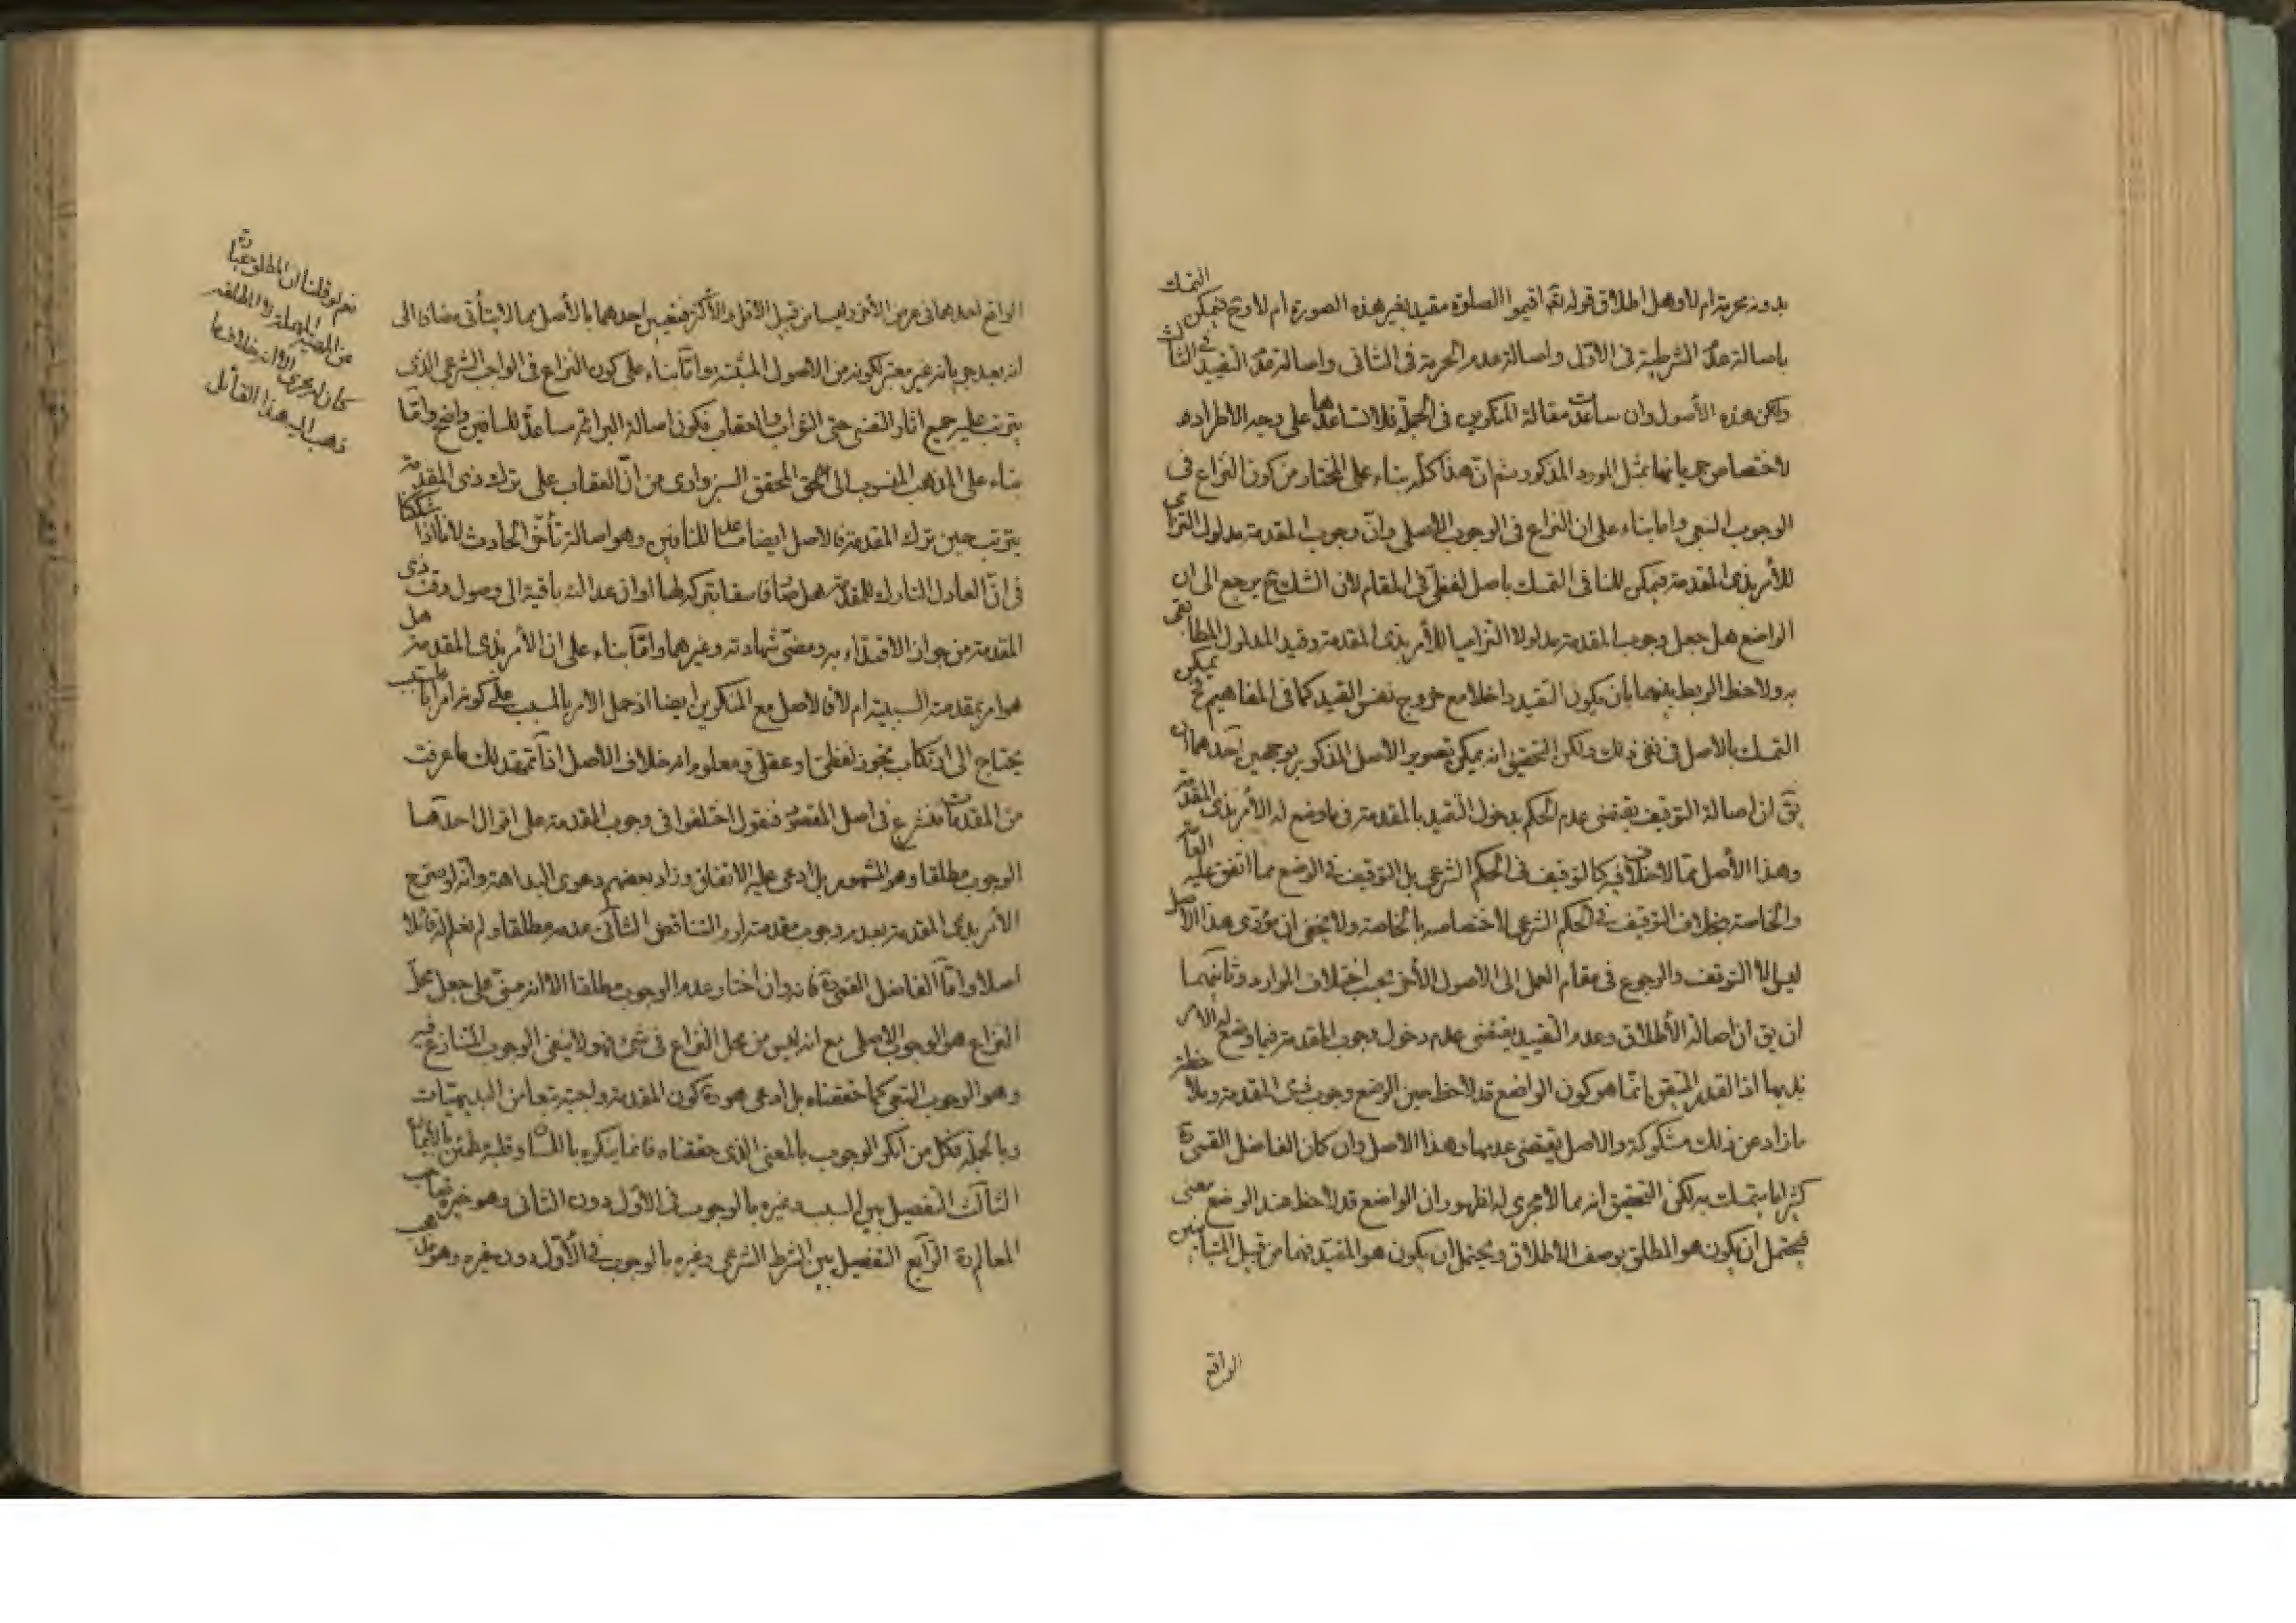 بدونه محرمة ام لا وهل اطلاق قوله تعه اقيموا الصلوة مقيد بغير هذه الصورة ام لا وح فيمكن التمسك
باصالة عدم الشرطية في الاول واصالة عدم الحرمة في الثاني واصالة عدم التقييد في الثالث
ولكن هذه الأصول وان ساعدت مقالة المنكرين في الجملة فلا تساعدها على وجه الاطراد
لاختصاص جريانها بمثل المورد المذكور ثم ان هذا كله بناء على المختار من كون النزاع في
الوجوب التبعي واما بناء على ان النزاع في الوجوب الاصلي وان وجوب المقدمة مدلول التزامى
للأمر بذى المقدمة فيمكن للنافى التمسك باصل لفظى في المقام لان الشك ح يرجع الى ان
الواضع هل جعل وجوب المقدمة مدلولا التزاميا للأمر بذى المقدمة وقيد المدلول المطابقى
به ولاحظ الربط بينهما بان يكون التقييد داخلا مع خروج نفس القيد كما في المفاهيم ح يمكن
التمسك بالاصل في نفى ذلك ولكن التحقيق انه يمكن تصوير الاصل المذكور بوجهين احدهما ان
يق ان اصالة التوقيف يقتضى عدم الحكم بدخول التقييد بالمقدمة فيما وضع له الأمر بذى المقدمة
وهذا الأصل مما لا خلاف فيه كالتوقيف في الحكم الشرعي بل التوقيف في الوضع مما اتفق عليه العامة
والخاصة بخلاف التوقيف في الحكم الشرعي لاختصاصه بالخاصة ولا يخفى ان مؤدى هذا الأصل
ليس الا التوقف والرجوع في مقام العمل الى الاصول الأخر بحسب اختلاف الموارد وثانيهما
ان يق ان اصالة الأطلاق وعدم التقييد يقتضى عدم دخول وجوب المقدمة فيما وضع له الأمر
بذيها اذ القدر المتيقن انما هو كون الواضع قد لاحظ حين الوضع وجوب ذى المقدمة وملاحظة
ما زاد عن ذلك مشكوكة والاصل يقتضى عدمها وهذا الاصل وان كان الفاضل القمى ره
كثيرا ما يتمسك به لكن التحقيق انه مما لا مجرى له لظهور ان الواضع قد لاحظ عند الوضع معنى
فيحتمل ان يكون هو المطلق بوصف الاطلاق ويحتمل ان يكون هو المقيد فهما من قبيل المتباينين
الواقع
الواقع احدهما في عرض الأخر وليسا من قبيل الاقل والأكثر فتعيين احدهما بالأصل مما لا يتأتى مضافا الى
انه بعد جريانه غير معتبر لكونه من الاصول المثبتة واما بناء على كون النزاع في الواجب الشرعي الذى
يترتب عليه جميع اثار النفسى حتى الثواب والعقاب فكون اصالة البرائة مساعدة للنافين واضح واما
بناء على المذهب المنسوب الى المحقق السبزوارى من ان العقاب على ترك ذى المقدمة
يترتب حين ترك المقدمة فالاصل ايضا مساعد للنافين وهو اصالة تأخر الحادث لانا اذا شككنا
في ان العادل التارك للمقدمة هل صار فاسقا بتركه لها او ان عدالته باقية الى وصول وقت ذى
المقدمة من جواز الاقتداء به ومضى شهادته وغيرهما واما بناء على ان الأمر بذى المقدمة هل
هو امر بمقدمته السببية ام لا فالاصل مع المنكرين ايضا اذ حمل الامر بالمسبب على كونه امرا بالسبب
يحتاج الى ارتكاب تجوز لفظى او عقلى ومعلوم انه خلاف الاصل اذا تمهد لك ما عرفت
من المقدمات فنشرع في اصل المقصود فنقول اختلفوا في وجوب المقدمة على اقوال احدها
الوجوب مطلقا وهو المشهور بل ادعى عليه الاتفاق وزاد بعضهم دعوى البداهة وانه لو صرح
الأمر بذى المقدمة بعدم وجوب مقدمته لزم التناقض الثانى عدمه مطلقا ولم نعلم له قائلا
اصلا واما الفاضل القمى ره فانه وان اختار عدم الوجوب مطلقا الا انه مبنى على جعل محل
النزاع هو الوجوب الاصلى مع انه ليس من محل النزاع في شئ فهو لا ينفى الوجوب المتنازع فيه
وهو الوجوب التبعى كما حققناه بل ادعى هو ره كون المقدمة واجبة تبعا من البديهيات
وبالجملة فكل من انكر الوجوب بالمعنى الذى حققناه فانما ينكره باللسان وقلبه مطمئن بالايمان
الثالث التفصيل بين السبب وغيره بالوجوب في الاول دون الثانى وهو خيرة صاحب
المعالم ره الرابع التفصيل بين الشرط الشرعى وغيره بالوجوب في الأول دون غيره وهو
نعم لو قلنا ان المطلق عبارة
عن المهملة لا المطلقة
كان له مجرى الا انه خلاف ما
ذهب اليه هذا القائل